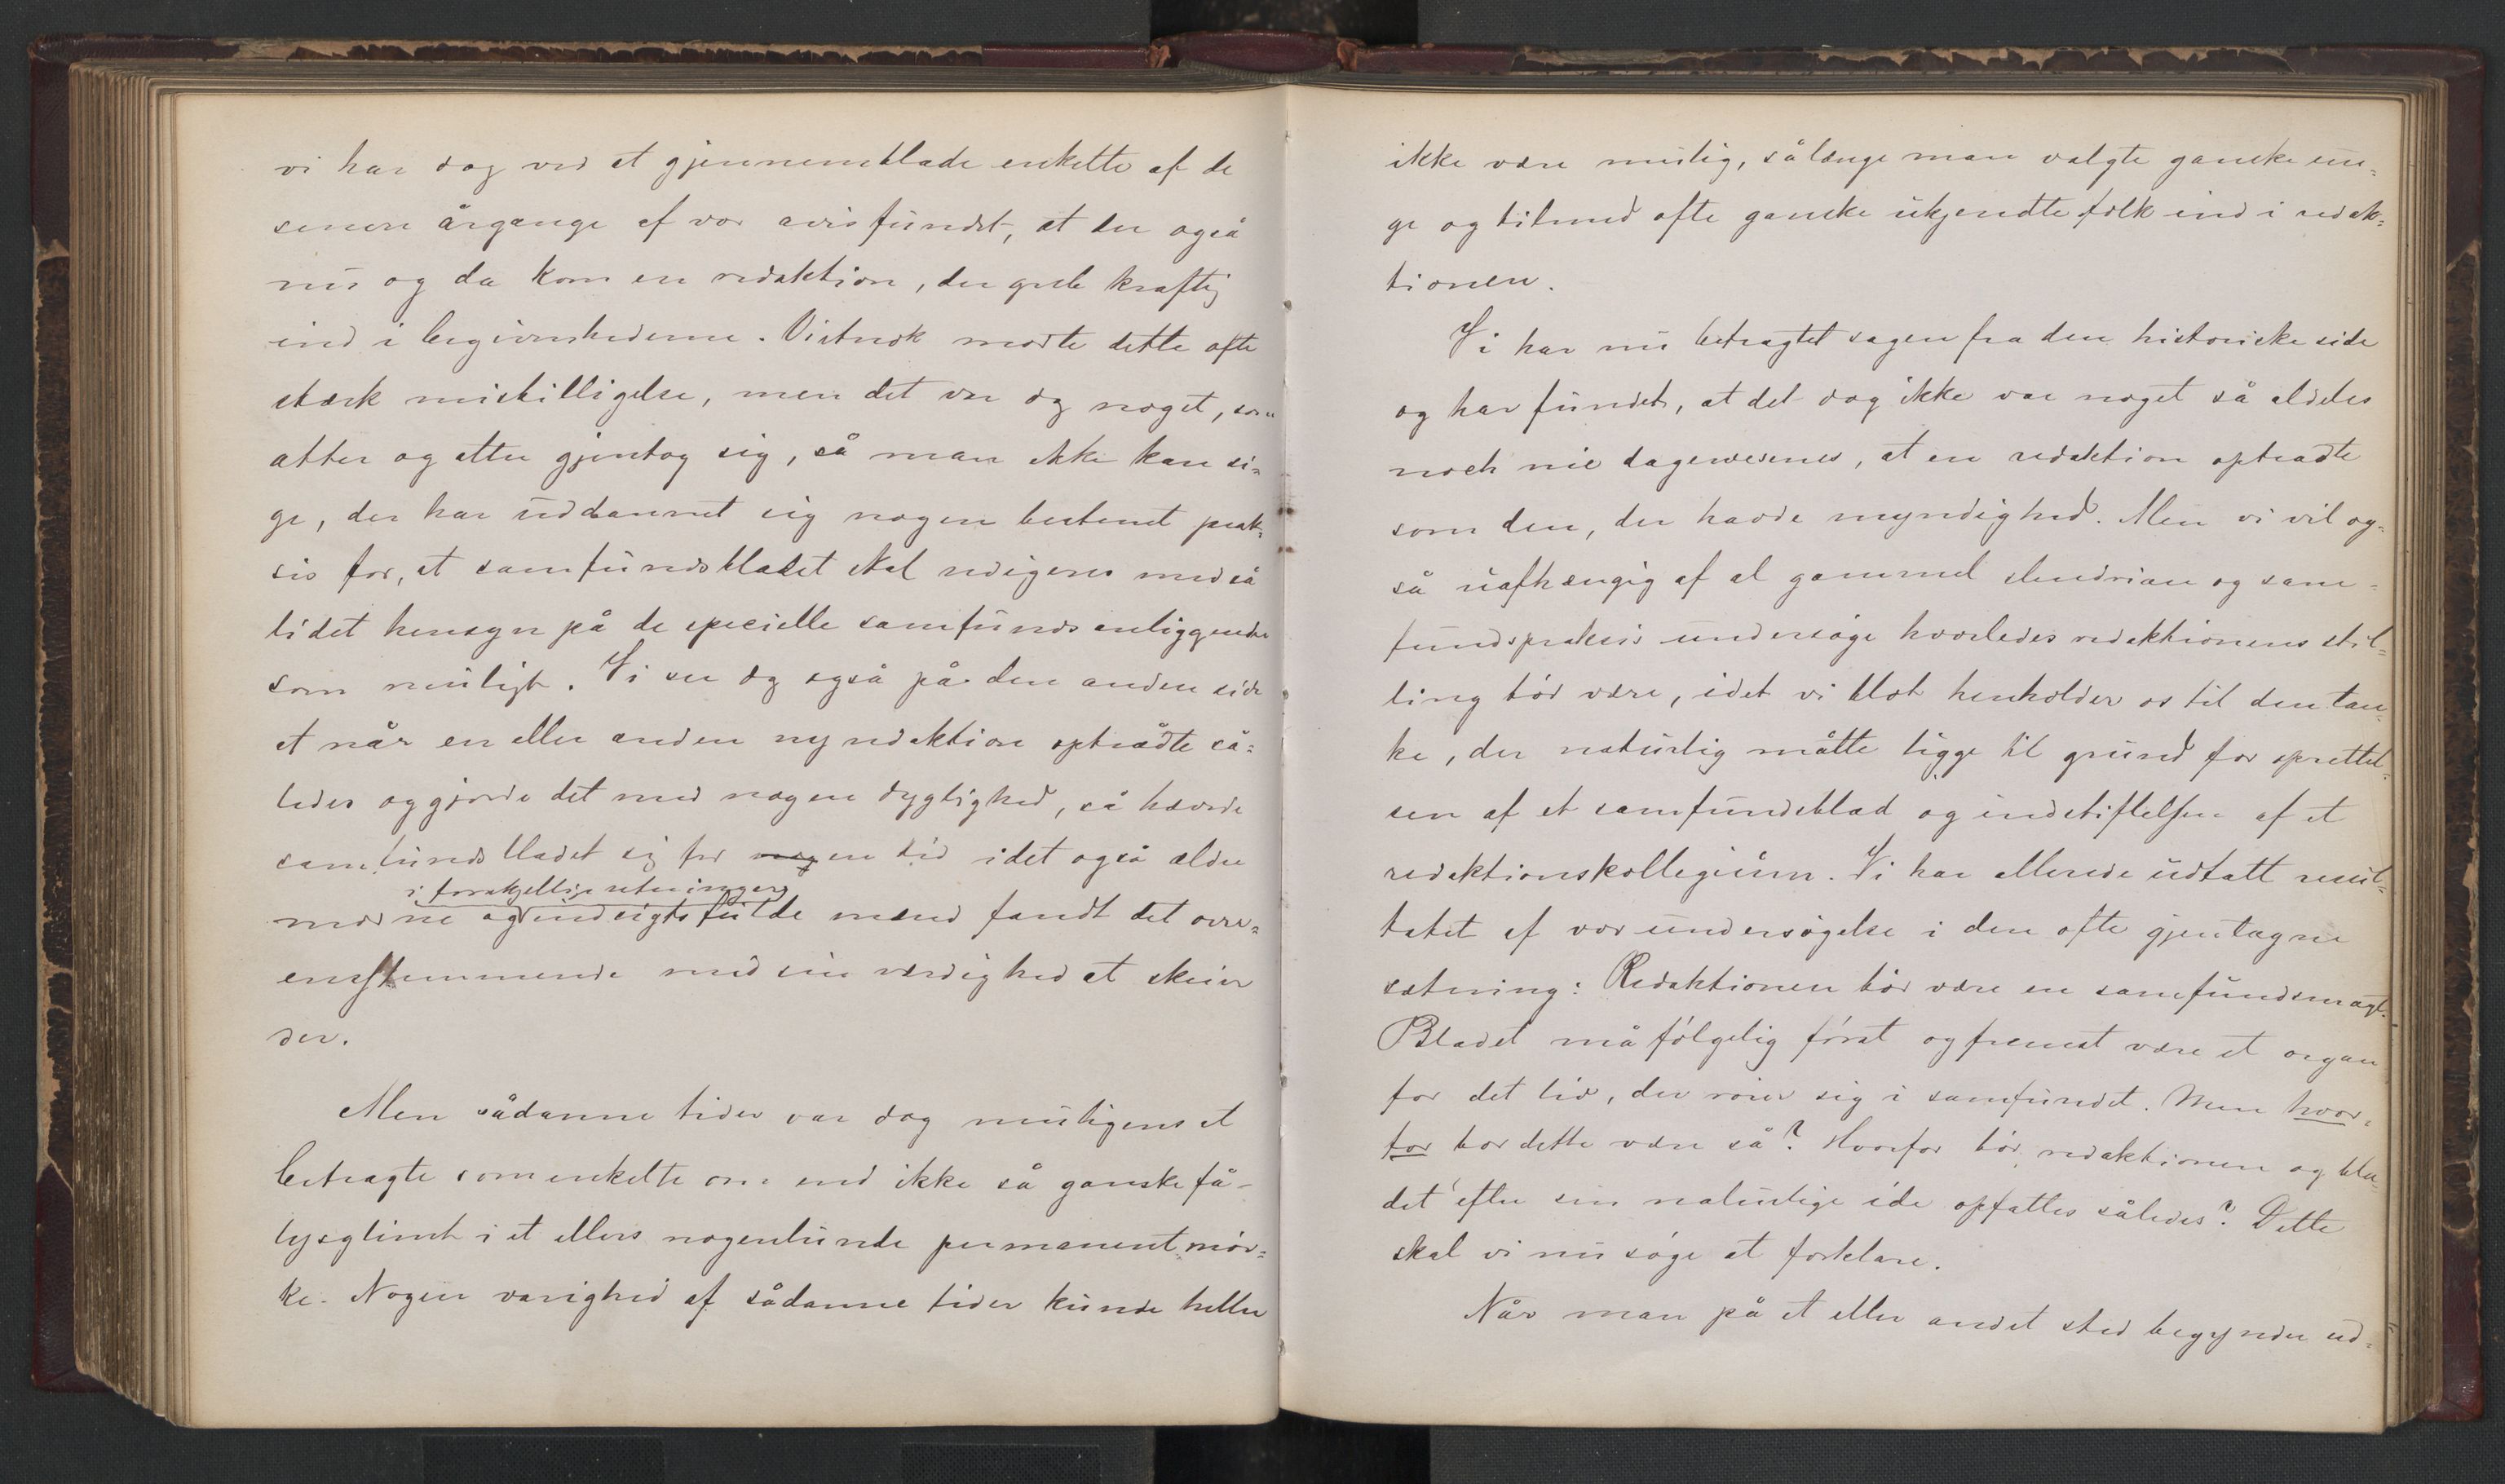 vi har dog ved at gjennemblade enkelte af de
senere årgange af vor avis fundet, at der også
nu og da kom en redaktion, der greb kraftig
ind i begivenhederne. Vistnok mødte dette ofte
stærk misbilligelse, men det var dog noget, som
atter og atter gjentog sig, så man ikke kan si-
ge, der har uddannet sig nogen bestemt prak-
sis for, at samfundsbladet skal redigeres med så
lidet hensyn på de specielle samfundsanliggender
som muligt. Vi ser dog også på den anden side
at når en eller anden ny redaktion optrådte så-
ledes og gjorde det med nogen dygtighed, så hævde
samfundsbladet sig for nogen tid idet også ældre
i forskjellige retninger
modne og indsigtsfulde mænd fandt det over-
ensstemmende med sin værdighed at skrive
der.
Men sådanne tider var dog muligens at
betragte som enkelte om end ikke så ganske få
lysglimt i et ellers nogenlunde permanent mør-
ke. Nogen varighed af sådanne tider kunde heller
ikke være mulig, sålænge man valgte ganske un-
ge og tilmed ofte ganske ukjendte folk ind i redak-
tionen.
Vi har nu betragtet sagen fra den historiske side
og har fundet, at det dog ikke var noget så aldeles
noch nie dagewesenes, at en redaktion optrådte
som den, der havde myndighed. Men vi vil og-
så uafhængig af al gammel slendrian og sam-
fundspraksis undersøge hvorledes redaktionens stil-
ling bør være, idet vi blot henholder os til den tan-
ke, der naturlig måtte ligge til grund for oprettel-
sen af et samfundsblad og indstiftelsen af et
redaktionskollegium. Vi har allerede udtalt resul-
tatet af vor undersøgelse i den ofte gjentagne
sætning: Redaktionen bør være en samfundsmagt.
Bladet må følgelig først og fremst være et organ
for det liv, der rører sig i samfundet. Men hvor-
for bør dette være så? Hvorfor bør redaktionen og bla-
det efter sin naturlige ide opfattes således? Dette
skal vi nu søge at forklare.
Når man på et eller andet sted begynder ud-